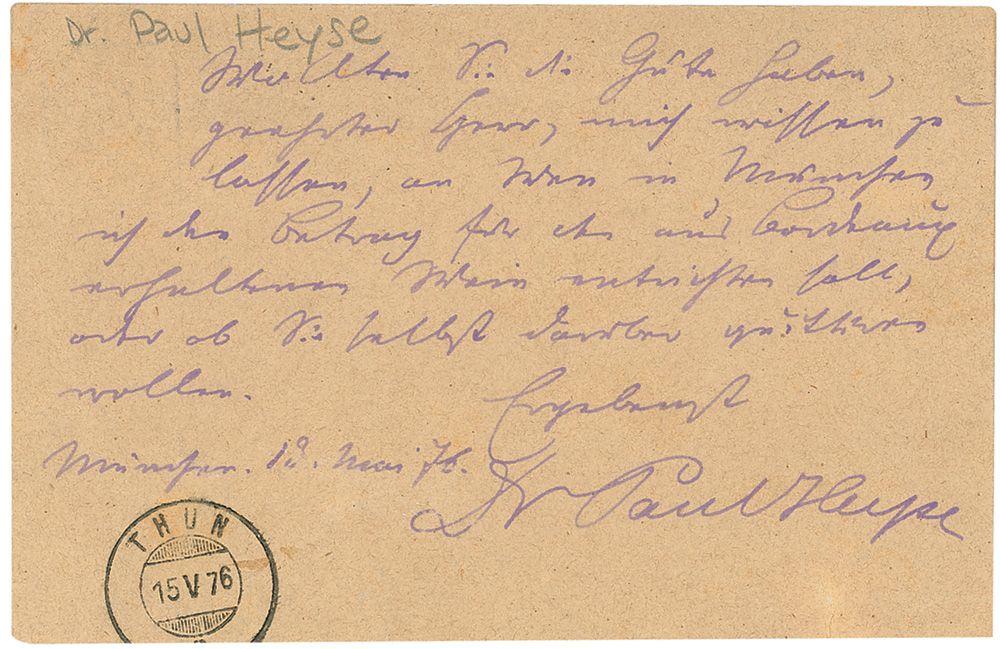 Dr. Paul Heyse
Wollten Sie die Güte haben,
geehrter Herr, mich wissen zu
lassen, an Wen in München
ich den Betrag für den aus Bordeaux
erhaltenen Wein entrichten soll,
oder ob Sie selbst darüber quittiren
wollen.
Ergebenst
München. 12. Mai 76.
Dr Paul Heyse
THUN
15 V 76